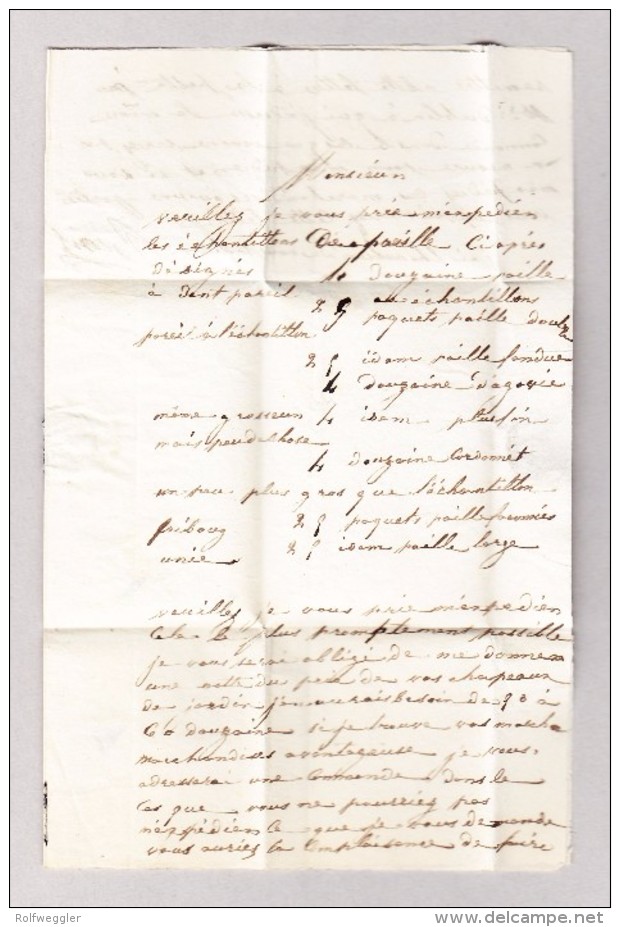 Monsieur
veuillez je vous prie m'expedier
les échantillons de paille Ci après
désignés 4 douzaine paille
à dent pareil aux échantillons
25 paquets paille double
pareil à l'échantillon
25 idem paille fendue
4 douzaine d'agovie
même grosseur 4 idem plus fin
mais peu de chose
4 douzaine Cordonnét
un peu plus gros que l'échantillon
fribourg 25 paquets paille
unie 25 idem paille large
veuillez je vous prie m'expedier
Cela le plus promptement possible
je vous serai obligé de me donner
une note du prix de vos chapeaux
de jardin j'en aurais besoin de 50 à
60 douzaine si je trouve vos marcha
marchandises avantageuse je vous
adresserai une Comande dans le
Cas que vous ne pourriez pas
m'expédier Ce que je vous demande
vous auriez la Complaisance de faire
Rolfweggler
http://www.delcampe.net